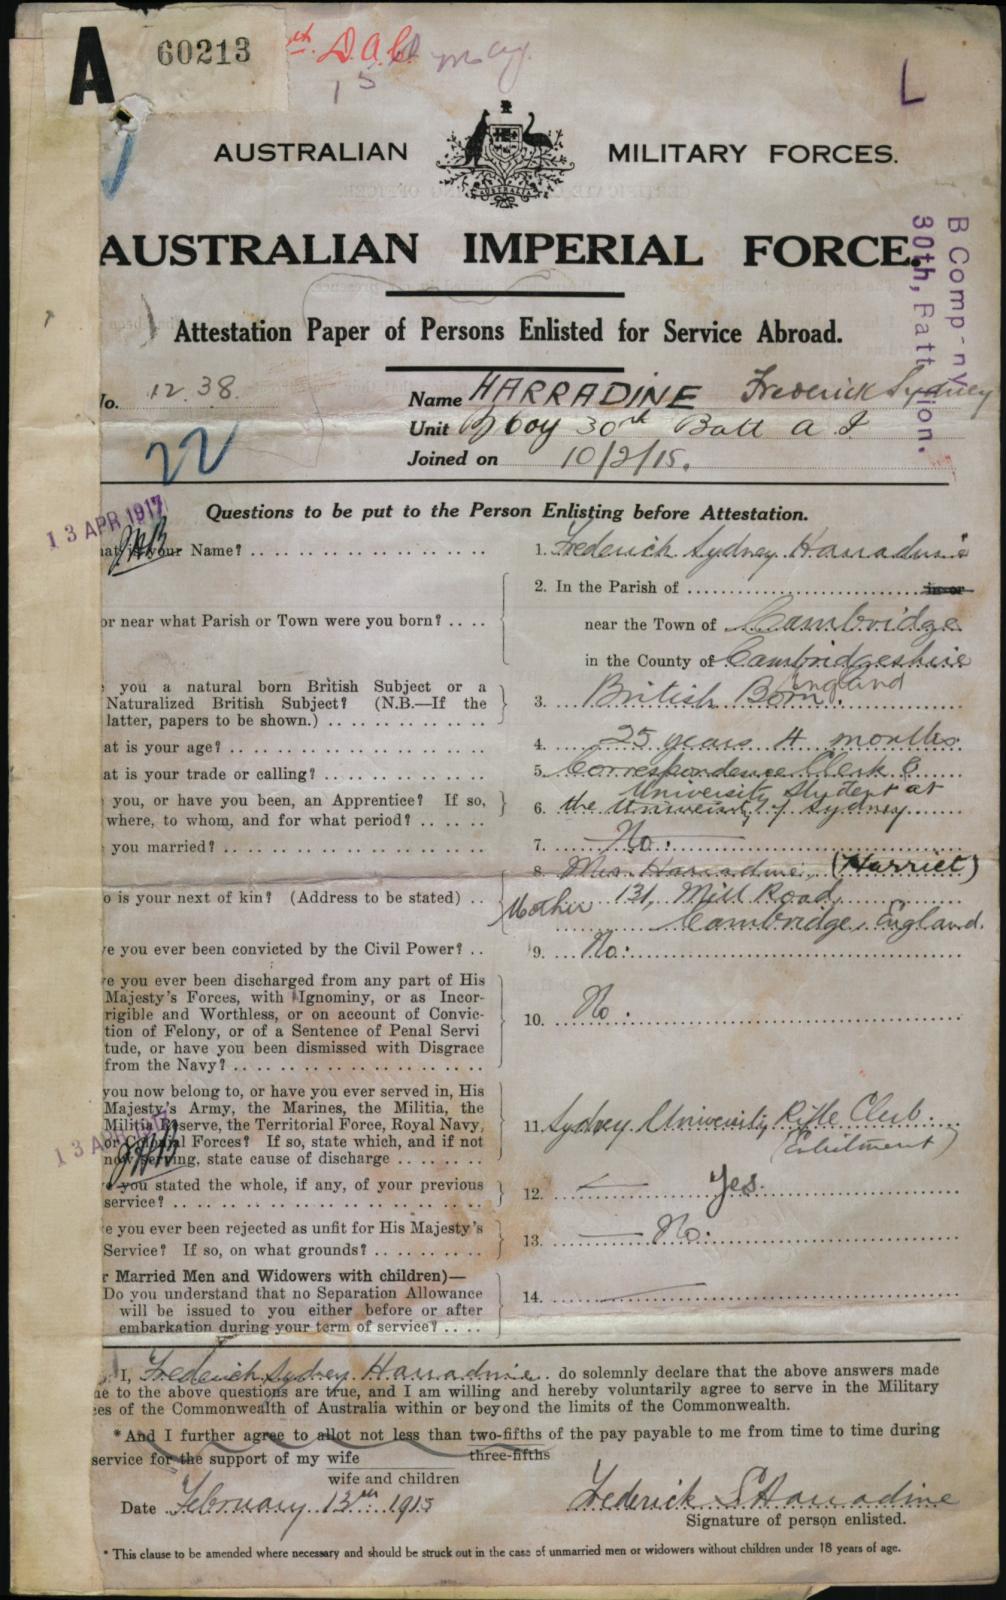 A 60213 th. D.A.C.
15 May.
L
AUSTRALIAN MILITARY FORCES.
AUSTRALIA
AUSTRALIAN IMPERIAL FORCE.
B Comp-ny
30th, Batt ion.
Attestation Paper of Persons Enlisted for Service Abroad.
No. 1238 Name HARRADINE Frederick Sydney
Unit B Coy 30th Batt A I
Joined on 10/2/15.
22
Questions to be put to the Person Enlisting before Attestation.
13 APR 1917
hat is your Name? 1. Frederick Sydney Harradine
2. In the Parish of in or
or near what Parish or Town were you born? near the Town of Cambridge
in the County of Cambridgeshire
England
you a natural born British Subject or a
Naturalized British Subject? (N.B.—If the 3. British Born.
latter, papers to be shown.)
at is your age? 4. 25 years 4 months
at is your trade or calling? 5. Correspondence Clerk &
University Student at
you, or have you been, an Apprentice? If so, 6. the University of Sydney
where, to whom, and for what period?
you married? 7. No.
8. Mrs. Harradine, (Harriet)
o is your next of kin? (Address to be stated) Mother 131, Mill Road,
Cambridge, England.
e you ever been convicted by the Civil Power? 9. No.
e you ever been discharged from any part of His
Majesty's Forces, with Ignominy, or as Incor-
rigible and Worthless, or on account of Convic- 10. No.
tion of Felony, or of a Sentence of Penal Servi
tude, or have you been dismissed with Disgrace
from the Navy?
you now belong to, or have you ever served in, His
Majesty's Army, the Marines, the Militia, the
Militia Reserve, the Territorial Force, Royal Navy, 11. Sydney University Rifle Club.
or Colonial Forces? If so, state which, and if not (Enlistment)
now serving, state cause of discharge
13 APR 1917
e you stated the whole, if any, of your previous 12. Yes.
service?
e you ever been rejected as unfit for His Majesty's 13. No.
Service? If so, on what grounds?
r Married Men and Widowers with children)—
Do you understand that no Separation Allowance 14.
will be issued to you either before or after
embarkation during your term of service?
I, Frederick Sydney Harradine do solemnly declare that the above answers made
e to the above questions are true, and I am willing and hereby voluntarily agree to serve in the Military
es of the Commonwealth of Australia within or beyond the limits of the Commonwealth.
*And I further agree to allot not less than two-fifths of the pay payable to me from time to time during
three-fifths
service for the support of my wife
wife and children
Date February 13th 1915 Frederick S Harradine
Signature of person enlisted.
* This clause to be amended where necessary and should be struck out in the case of unmarried men or widowers without children under 18 years of age.